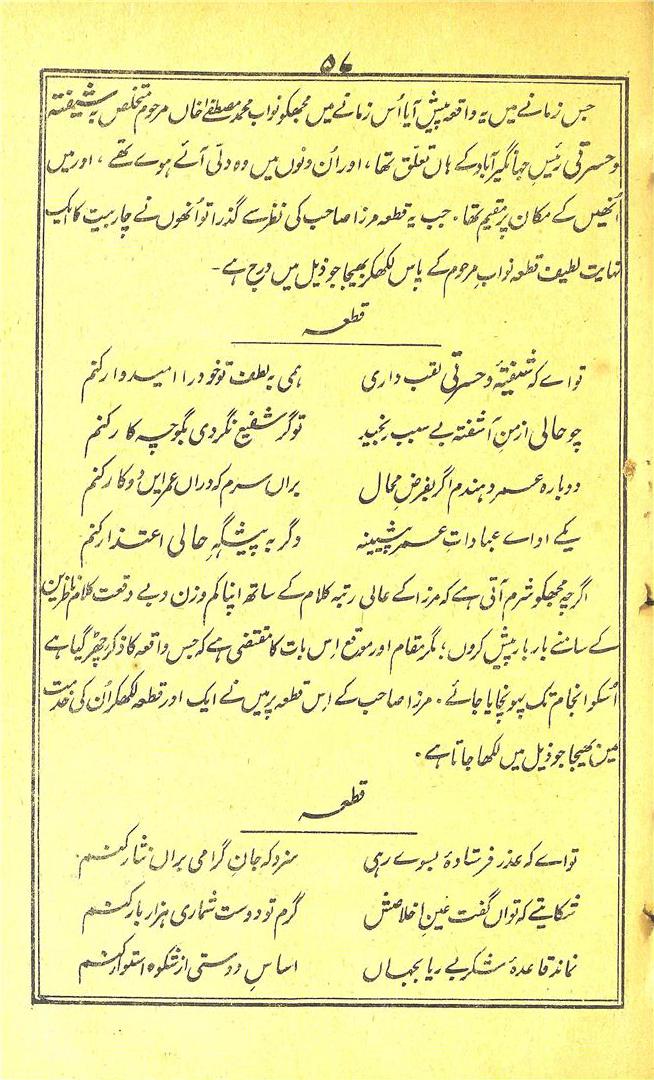 ۵۷
جس زمانے میں یہ واقعہ پیش آیا اُس زمانے میں مجھکو نواب محمد مصطفےٰ خاں مرحوم متخلص بہ شیفتہ
و حسرتی رئیسِ جہانگیر آباد کے ہاں تعلّق تھا، اور اُن دنوں میں وہ دلّی آئے ہوے تھے، اور میں
اُنھیں کے مکان پر مقیم تھا۔ جب یہ قطعہ مرزا صاحب کی نظر سے گذرا تو اُنھوں نے چار بیت کا ایک
نہایت لطیف قطعہ نوابِ مرحوم کے پاس لکھکر بھیجا جو ذیل میں درج ہے۔
قطعہ
تو اے کہ شیفتہ و حسرتی لقب داری    ہمی بہ لطف تو خود را امیدوار کنم
چو حالی از منِ آشفتہ بے سبب رنجید    تو گر شفیع نگردی بگو چہ کار کنم
دوبارہ عمر دہندم اگر بفرضِ محال    براں سرم کہ دراں عمر ایں دو کار کنم
یکے اداے عبادات عمرِ پیشینہ    دگر بہ پیشگہِ حالی اعتذار کنم
اگرچہ مجھکو شرم آتی ہے کہ مرزا کے عالی رتبہ کلام کے ساتھ اپنا کم وزن و بے وقعت کلام ناظرین
کے سامنے بار بار پیش کروں؛ مگر مقام اور موقع اِس بات کا مقتضی ہے کہ جس واقعہ کا ذکر چھڑ گیا ہے
اُسکو انجام تک پہونچایا جائے۔ مرزا صاحب کے اِس قطعہ پر میں نے ایک اور قطعہ لکھکر اُن کی خدمت
مین بھیجا جو ذیل میں لکھا جاتا ہے۔
قطعہ
تو اے کہ عذر فرستادۂ بسوے رہی    سزد کہ جانِ گرامی براں نثار کنم
شکایتے کہ تواں گفت عینِ اخلاصش    گرم تو دوست شماری ہزار بار کنم
نماند قاعدۂ شکرِ بے ریا بجہاں    اساسِ دوستی از شکوہ استوار کنم